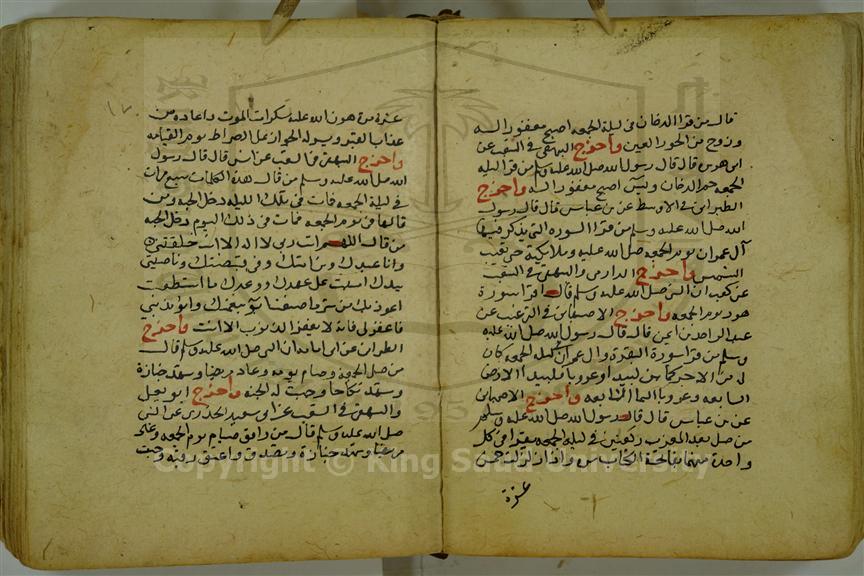 قال من قرا الدخان في ليلة الجمعه اصبح مغفورا له
وزوج من الحور العين وأخرج البيهقي في الشعب عن
ابي هريره قال قال رسول الله صلى الله عليه وسلم من قرا ليلة
الجمعه حم الدخان ويس اصبح مغفورا له وأخرج
الطبراني في الاوسط عن بن عباس قال قال رسول
الله صلى الله عليه وسلم من قرا السوره التي يذكر فيها
آل عمران يوم الجمعه صلى الله عليه وملايكته حتى تغيب
الشمس وأخرج الدارمي والبيهقي في الشعب
عن كعب ان النبي صلى الله عليه وسلم قال اقرا سورة
هود يوم الجمعه وأخرج الاصبهاني في الترغيب عن
عبد الواحد بن ايمن قال قال رسول الله صلى الله عليه
وسلم من قرا سورة البقرة وال عمران ليلة الجمعه كان
له من الاجر كما بين لبيدا وعروبا فلبيدا الارض
السابعه وعروبا السما السابعه وأخرج الاصبهاني
عن بن عباس قال قال رسول الله صلى الله عليه وسلم
من صلى بعد المغرب ركعتين في ليلة الجمعه يقرا في كل
واحدة منهما بفاتحة الكتاب واذا زلزلت خمس
عشرة
عشرة مرة هون الله عليه سكرات الموت واعاذه من
عذاب القبر ويسر له الجواز على الصراط يوم القيامه
وأخرج البيهقي في الشعب عن انس قال قال رسول
الله صلى الله عليه وسلم من قال هذه الكلمات سبع مرات
في ليلة الجمعه فمات في تلك الليلة دخل الجنه ومن
قالها في يوم الجمعه فمات في ذلك اليوم دخل الجنه
من قال اللهم انت ربي لا اله الا انت خلقتني
وانا عبدك وبن امتك وفي قبضتك وناصيتي
بيدك امسيت على عهدك ووعدك ما استطعت
اعوذ بك من شر ما صنعت ابوء بنعمتك وابوء بذنبي
فاغفر لي فانه لا يغفر الذنوب الا انت وأخرج
الطبراني عن ابي امامه ان النبي صلى الله عليه وسلم قال
من صلى الجمعة وصام يومه وعاد مريضا وشهد جنازة
وشهد نكاحا وجبت له الجنة وأخرج ابو يعلى
والبيهقي في الشعب عن ابي سعيد الخدري عن النبي
صلى الله عليه وسلم قال من وافق صيام يوم الجمعه وعاد
مريضا وشهد جنازة وتصدق واعتق رقبة وجبت
Copyright © King Saud University